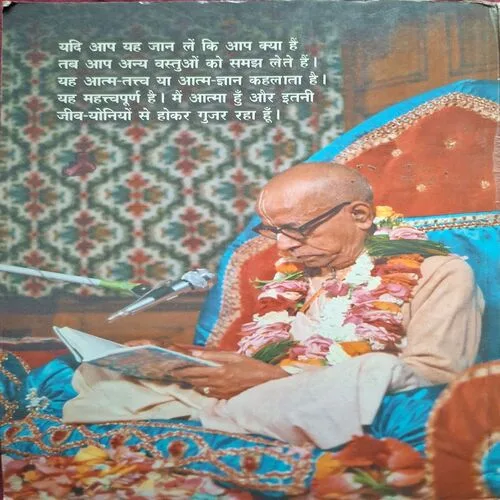 यदि आप यह जान लें कि आप क्या हैं
तब आप अन्य वस्तुओं को समझ लेते हैं।
यह आत्म-तत्त्व या आत्म-ज्ञान कहलाता है।
यह महत्त्वपूर्ण है। मैं आत्मा हुँ और इतनी
जीब-योनियों से होकर गुजर रहा हूँ।